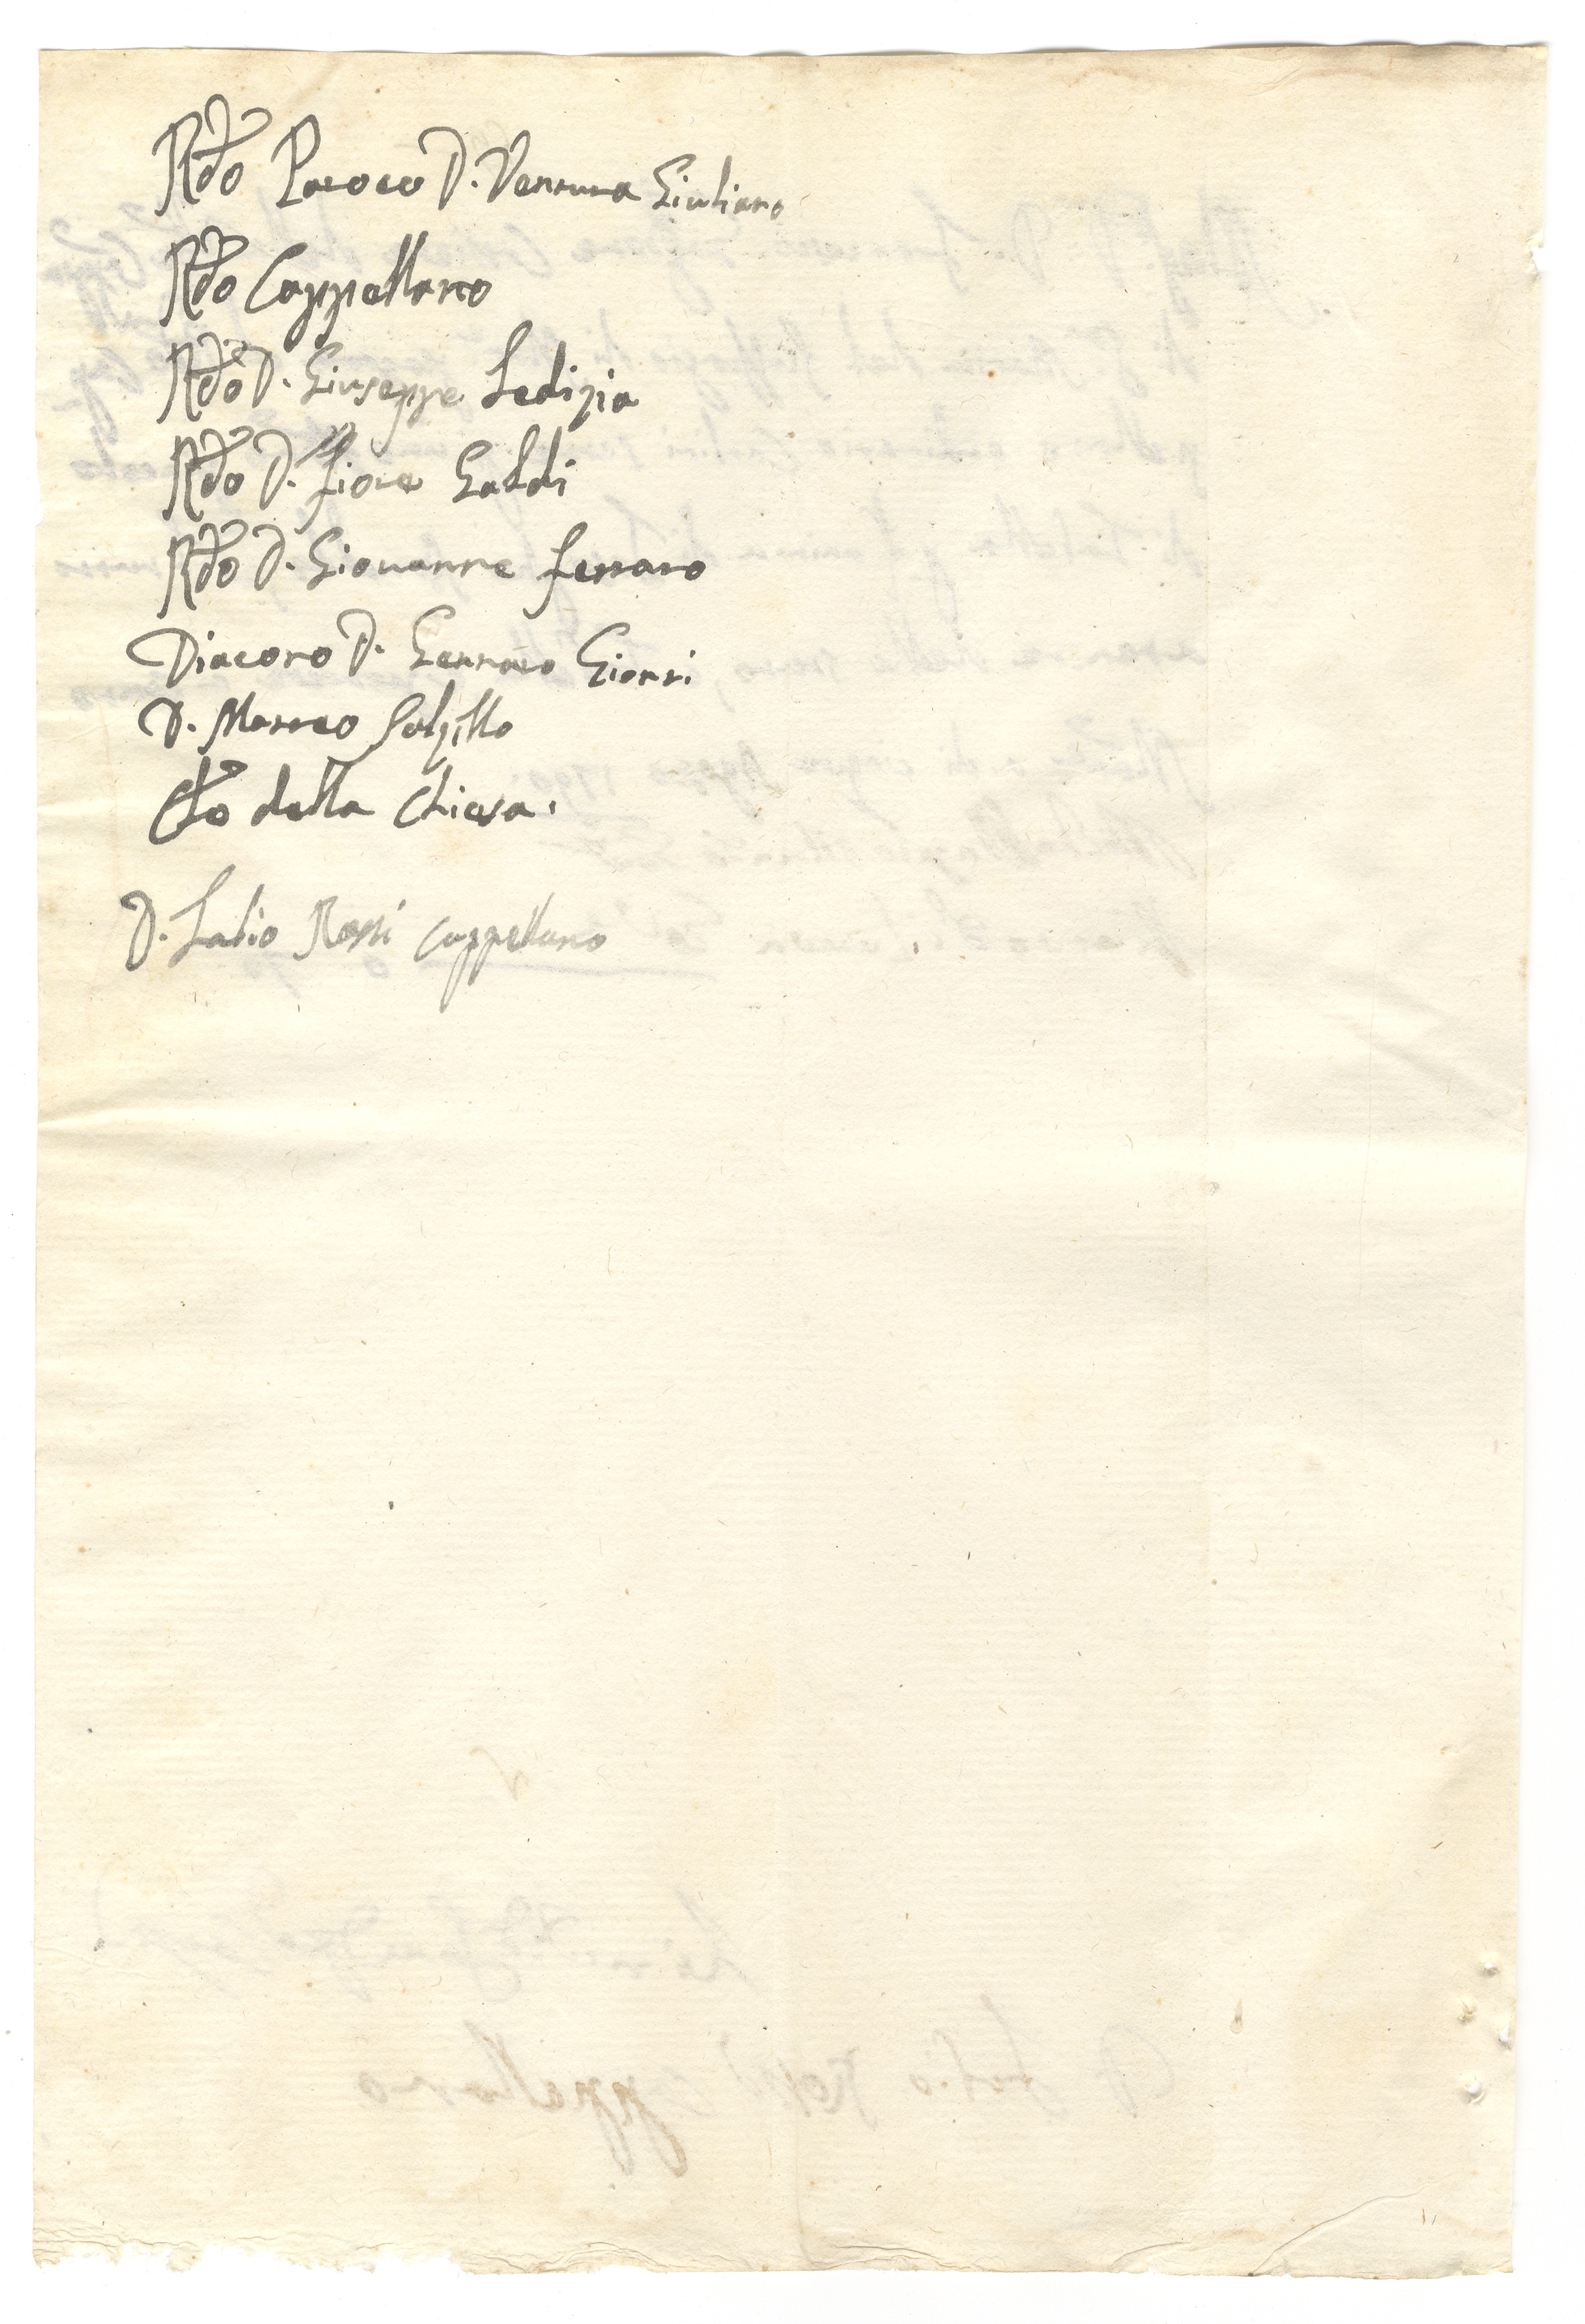 Rdo Paroco D. Ventura Giuliano
Rdo Cappellano
Rdo D. Giuseppe Ledizia
Rdo D. Fiore Galdi
Rdo D. Giovanne Ferraro
Diacono D. Gennaro Gionti
D. Matteo Salzillo
Cto della Chiesa.
D. Fabio Rossi Cappellano